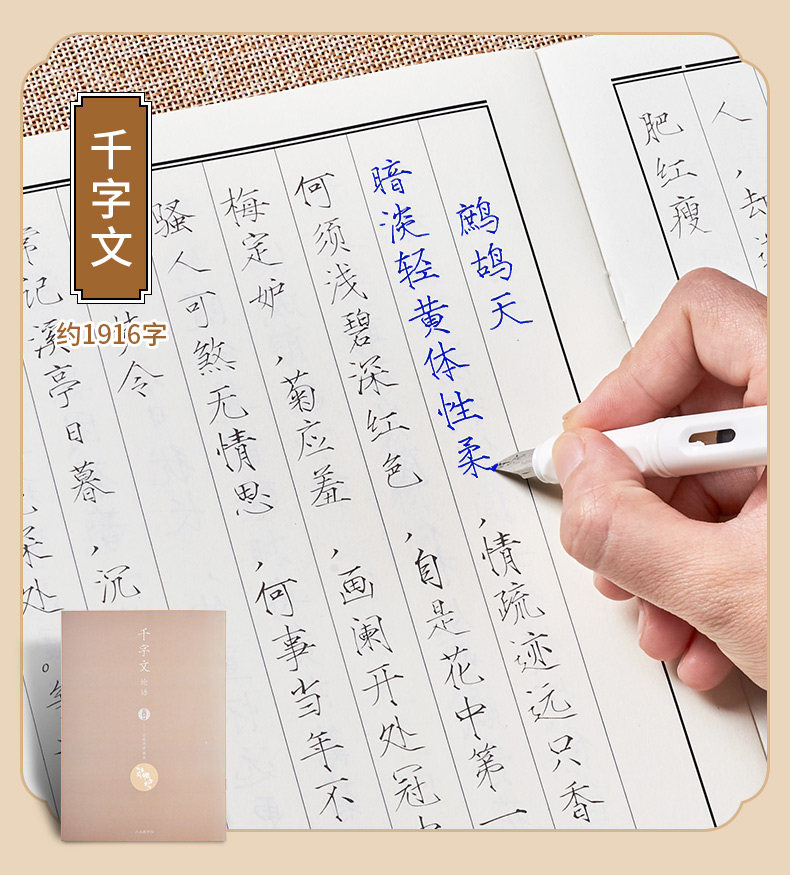 千字文
约1916字
人
，却
肥红瘦
鹧鸪天
暗淡轻黄体性柔，情疏迹远只香
何须浅碧深红色，自是花中第一
梅定妒，菊应羞，画阑开处冠
骚人可煞无情思，何事当年不
令
常记溪亭日暮，沉
处
千字文